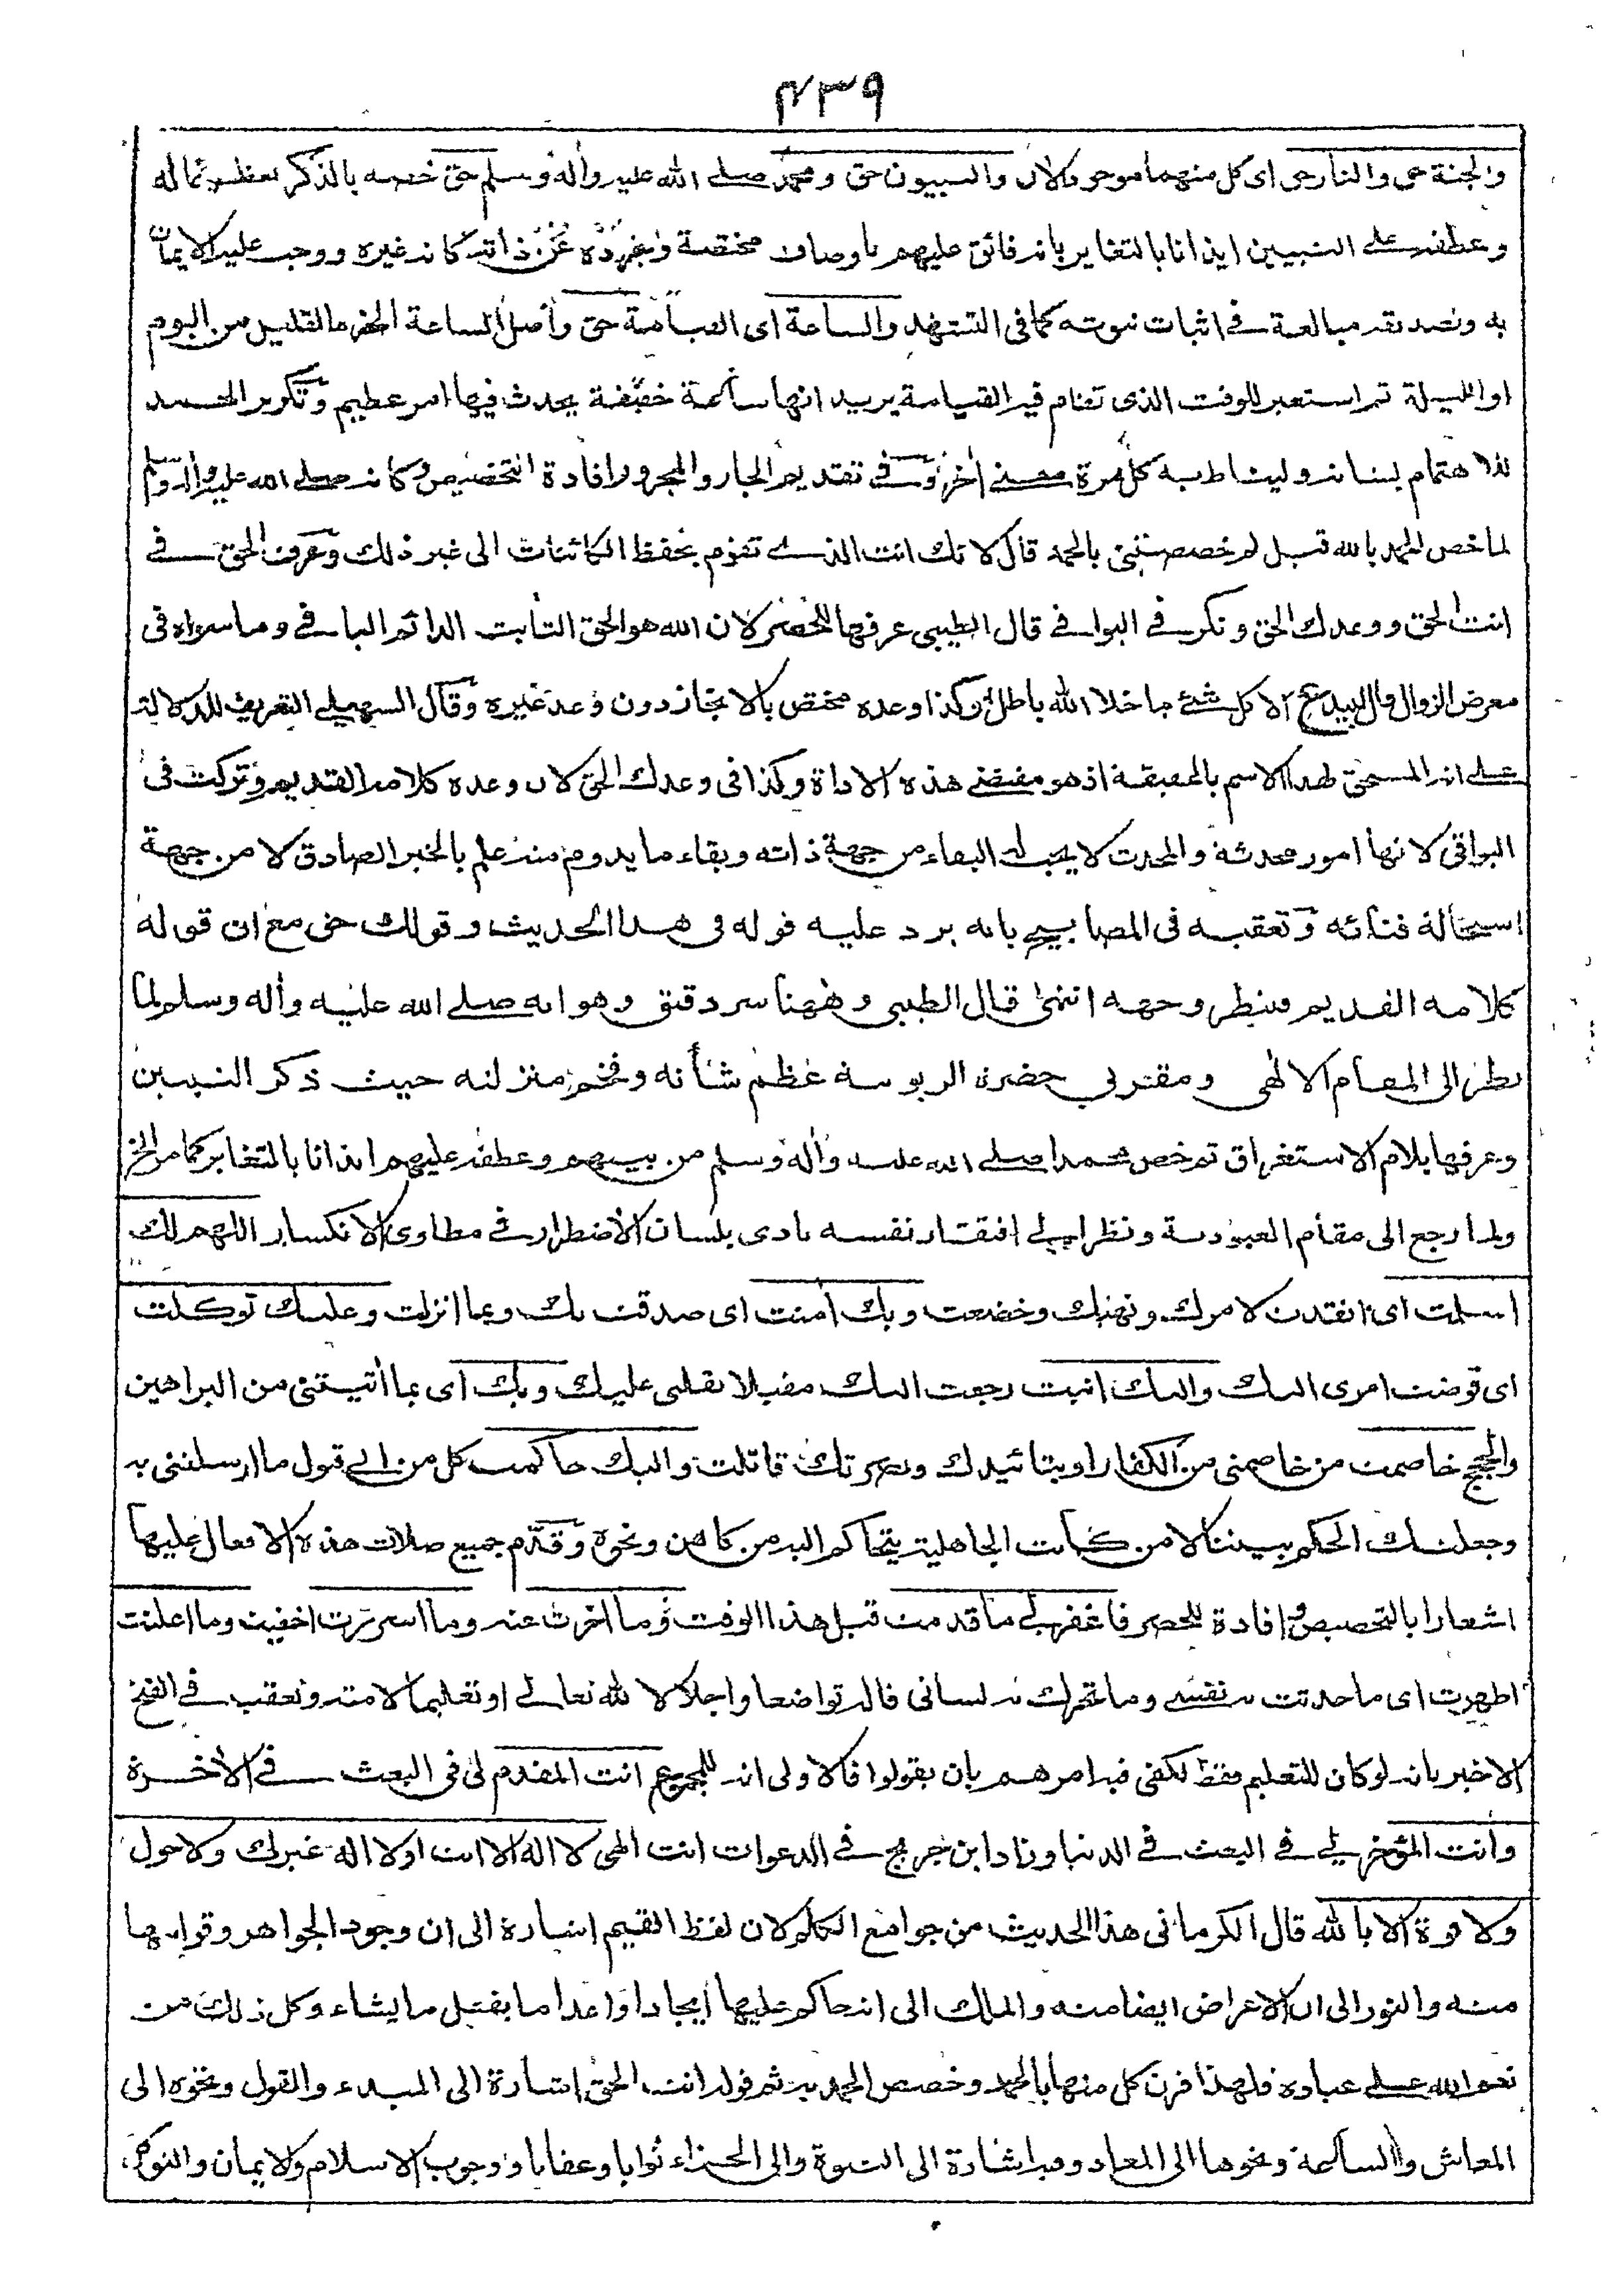 ٤٣٩
والجنة حق والنار حق اى كل منهما موجود الان والنبيون حق ومحمد صلى الله عليه وأله وسلم حق خصه بالذكر تعظيما له
وعطفه على النبيين ايذانا بالتغاير بانه فائق عليهم باوصاف مختصة وجرده عن ذاته كانه غيره ووجب عليه الايمان
به وتصديقه مبالغة فى اثبات نبوته كما فى التشهد والساعة اى القيامة حق وأصل الساعة الجزء القليل من اليوم
او الليلة ثم استعير للوقت الذى تقام فيه القيامة يريد انها ساعة خفيفة يحدث فيها امر عظيم وتكرير الحمد
للاهتمام بشانه وليناط به كل مرة معنى اخر وفى تقديم الجار والمجرور افادة التخصيص وكانه صلى الله عليه وأله وسلم
لما خص الحمد بالله قيل لم خصصتنى بالحمد قال لانك انت الذى تقوم بحفظ الكائنات الى غير ذلك وعرف الحق فى
انت الحق ووعدك الحق ونكر فى البواقى قال الطيبى عرفها للحصر لان الله هو الحق الثابت الدائم الباقى وما سواه فى
معرض الزوال قال لبيد ع الا كل شئ ما خلا الله باطل وكذا وعده مختص بالانجاز دون وعد غيره وقال السهيلى التعريف للدلالة
على انه المستحق لهذا الاسم بالحقيقة اذ هو مقتضى هذه الاداة وكذا فى وعدك الحق لان وعده كلامه القديم وتركت فى
البواقى لانها امور محدثة والمحدث لا يجب له البقاء من جهة ذاته وبقاء ما يدوم منه علم بالخبر الصادق لا من جهة
استحالة فنائه وتعقبه فى المصابيح بانه يرد عليه قوله فى هذا الحديث وقولك حق مع ان قوله
كلامه القديم فينظر وجهه انتهى قال الطيبى وههنا سر دقيق وهو انه صلى الله عليه وأله وسلم لما
نظر الى المقام الالهى ومقربى حضرة الربوبية عظم شأنه وفخم منزلته حيث ذكر النبيين
وعرفها بلام الاستغراق ثم خص محمدا صلى الله عليه وأله وسلم من بينهم وعطفه عليهم ايذانا بالتغاير كما مر الخ
ولما رجع الى مقام العبودية ونظر الى افتقار نفسه نادى بلسان الاضطرار فى مطاوى الانكسار اللهم لك
اسلمت اى انقدت لامرك ونهيك وخضعت وبك امنت اى صدقت بك وبما انزلت وعليك توكلت
اى فوضت امرى اليك واليك انبت رجعت اليك مقبلا بقلبى عليك وبك اى بما أتيتنى من البراهين
والحجج خاصمت من خاصمنى من الكفار او بتائيدك ونصرتك قاتلت واليك حاكمت كل من ابى قبول ما ارسلتنى به
وجعلتك الحكم بيننا لا من كانت الجاهلية يتحاكم اليه من كاهن ونحوه وقدم جميع صلات هذه الافعال عليها
اشعارا بالتخصيص وافادة للحصر فاغفر لى ما قدمت قبل هذا الوقت وما اخرت عنه وما اسررت اخفيت وما اعلنت
اظهرت اى ما حدثت به نفسى وما تحرك به لسانى قاله تواضعا واجلالا لله تعالى او تعليما لامته وتعقب فى الفتح
الاخير بانه لو كان للتعليم فقط لكفى فيه امرهم بان يقولوا فالاولى انه للمجموع انت المقدم لى فى البعث فى الاخرة
وأنت المؤخر لى فى البعث فى الدنيا وزاد ابن جريج فى الدعوات انت الهى لا اله الا انت اولا اله غيرك ولا حول
ولا قوة الا بالله قال الكرمانى هذا الحديث من جوامع الكلم لان لفظ القيم اشارة الى ان وجود الجواهر وقوامها
منه والنور الى ان الاعراض ايضا منه والملك الى انه حاكم عليها ايجادا واعداما يفعل ما يشاء وكل ذلك من
نعم الله على عباده فلهذا قرن كل منها بالحمد وخصص الحمد به ثم قوله انت الحق اشارة الى المبدء والقول ونحوه الى
المعاش والساعة ونحوها الى المعاد وفيه اشارة الى النبوة والى الجزاء ثوابا وعقابا ووجوب الاسلام والايمان والتوكل